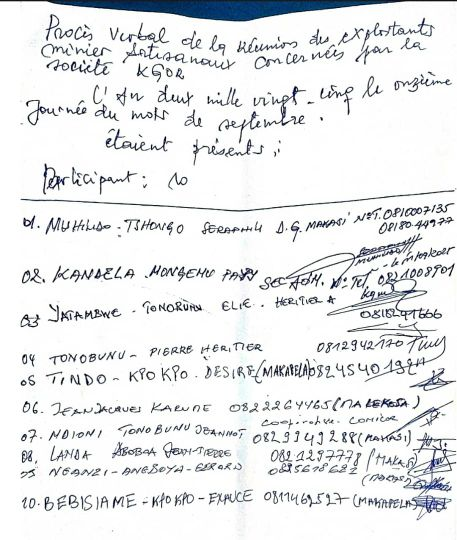 Procès verbal de la réunion des exploitants
minier Artisanaux concernés par la
société KGOR
L'An deux mille vingt-cinq le onzième
Journée du mois de septembre.
étaient présents ;
Participant : 10
01. MUHINDO - TSHONGO SERAPHIN D.G. MAKASI N°T. 0810007135
08180 44977
02. KANDELA MONGEHU SEC ADM. N° Tel 0821008901
03 - TONOBUNU ELIE - HERITIER A
0818241666
04 TONOBUNU - PIERRE HERITIER 0812942170
05 TINDO - KPOKPO. DESIRE (MAKAPELA) 0824540
06. JEAN JACQUES KARUME 0822264465
07. NDIONI TONOBUNU JEANNOT 0829349288 (MAKASI)
cooperative
08, LANDA JEAN-PIERRE 0821297778 (MAKASI)
NGANZI - ANEBOYA - GERARD 0895678682 (MAKASI)
10. BEBISIAME - KPOKPO - EXAUCE 0811469527 (MAKAPELA)